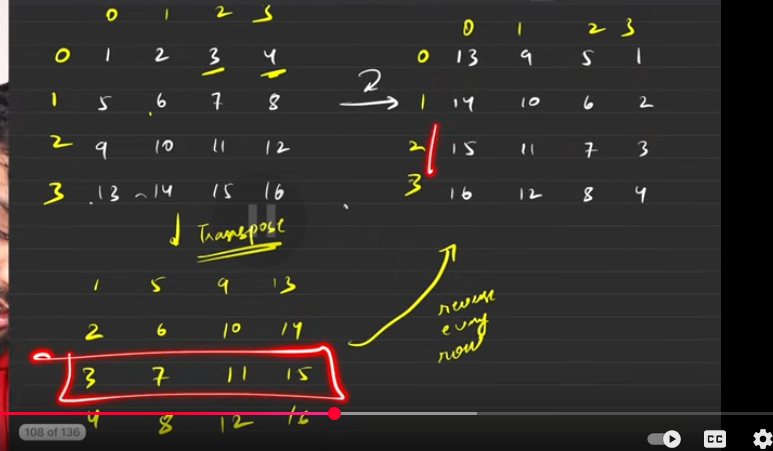 0 1 2 3
0 1 2 3 4
1 5 6 7 8
2 9 10 11 12
3 13 14 15 16
0 1 2 3
0 13 9 5 1
1 14 10 6 2
2 15 11 7 3
3 16 12 8 4
Transpose
1 5 9 13
2 6 10 14
3 7 11 15
4 8 12 16
reverse
every
row
108 of 136
CC